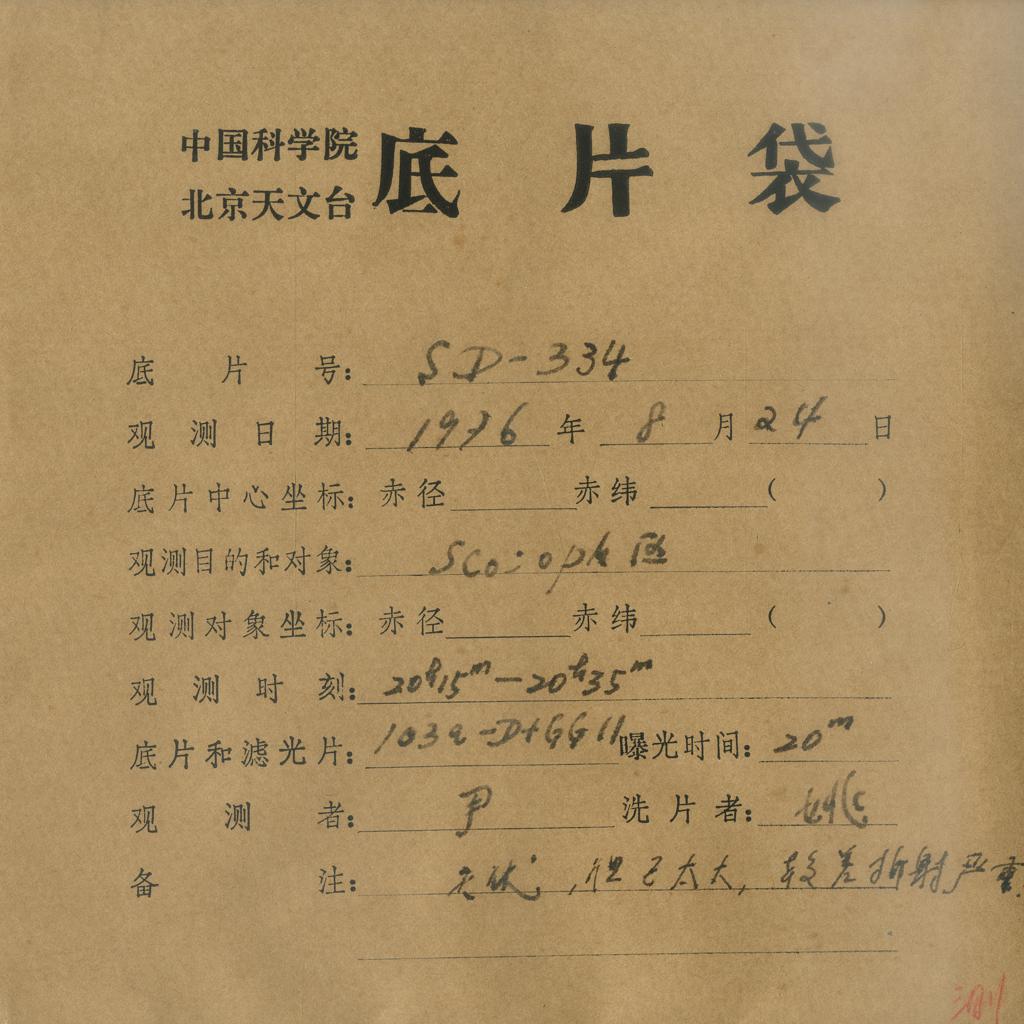 中国科学院
北京天文台
底片袋
底片号: SD-334
观测日期: 1976年8月24日
底片中心坐标: 赤径 赤纬 ( )
观测目的和对象: Sco-oph 区
观测对象坐标: 赤径 赤纬 ( )
观测时刻: 20h15m—20h35m
底片和滤光片: 103a-D+GG11 曝光时间: 20m
观测者: 尹 洗片者:
备注: 但Z太大, 较差折射严重.
测